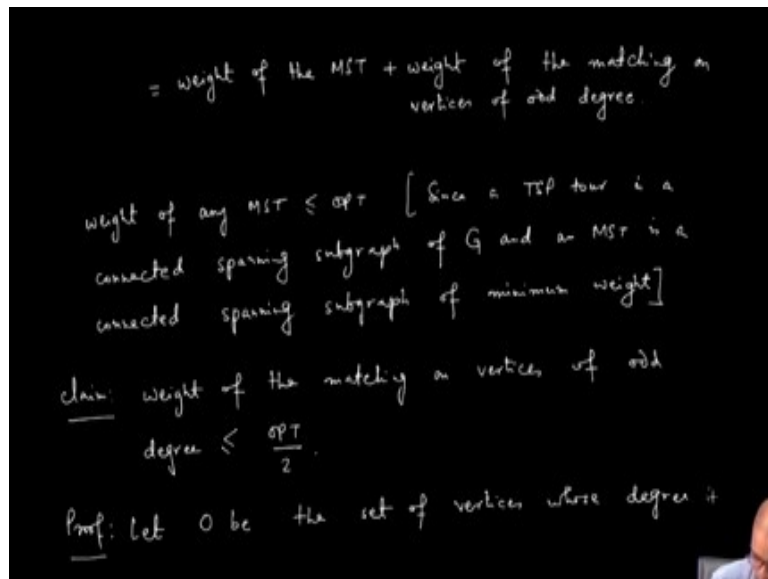 = weight of the MST + weight of the matching on
vertices of odd degree.
weight of any MST ≤ OPT [Since a TSP tour is a
connected spanning subgraph of G and an MST is a
connected spanning subgraph of minimum weight]
claim: weight of the matching on vertices of odd
degree ≤ OPT/2.
Proof: Let O be the set of vertices whose degree is